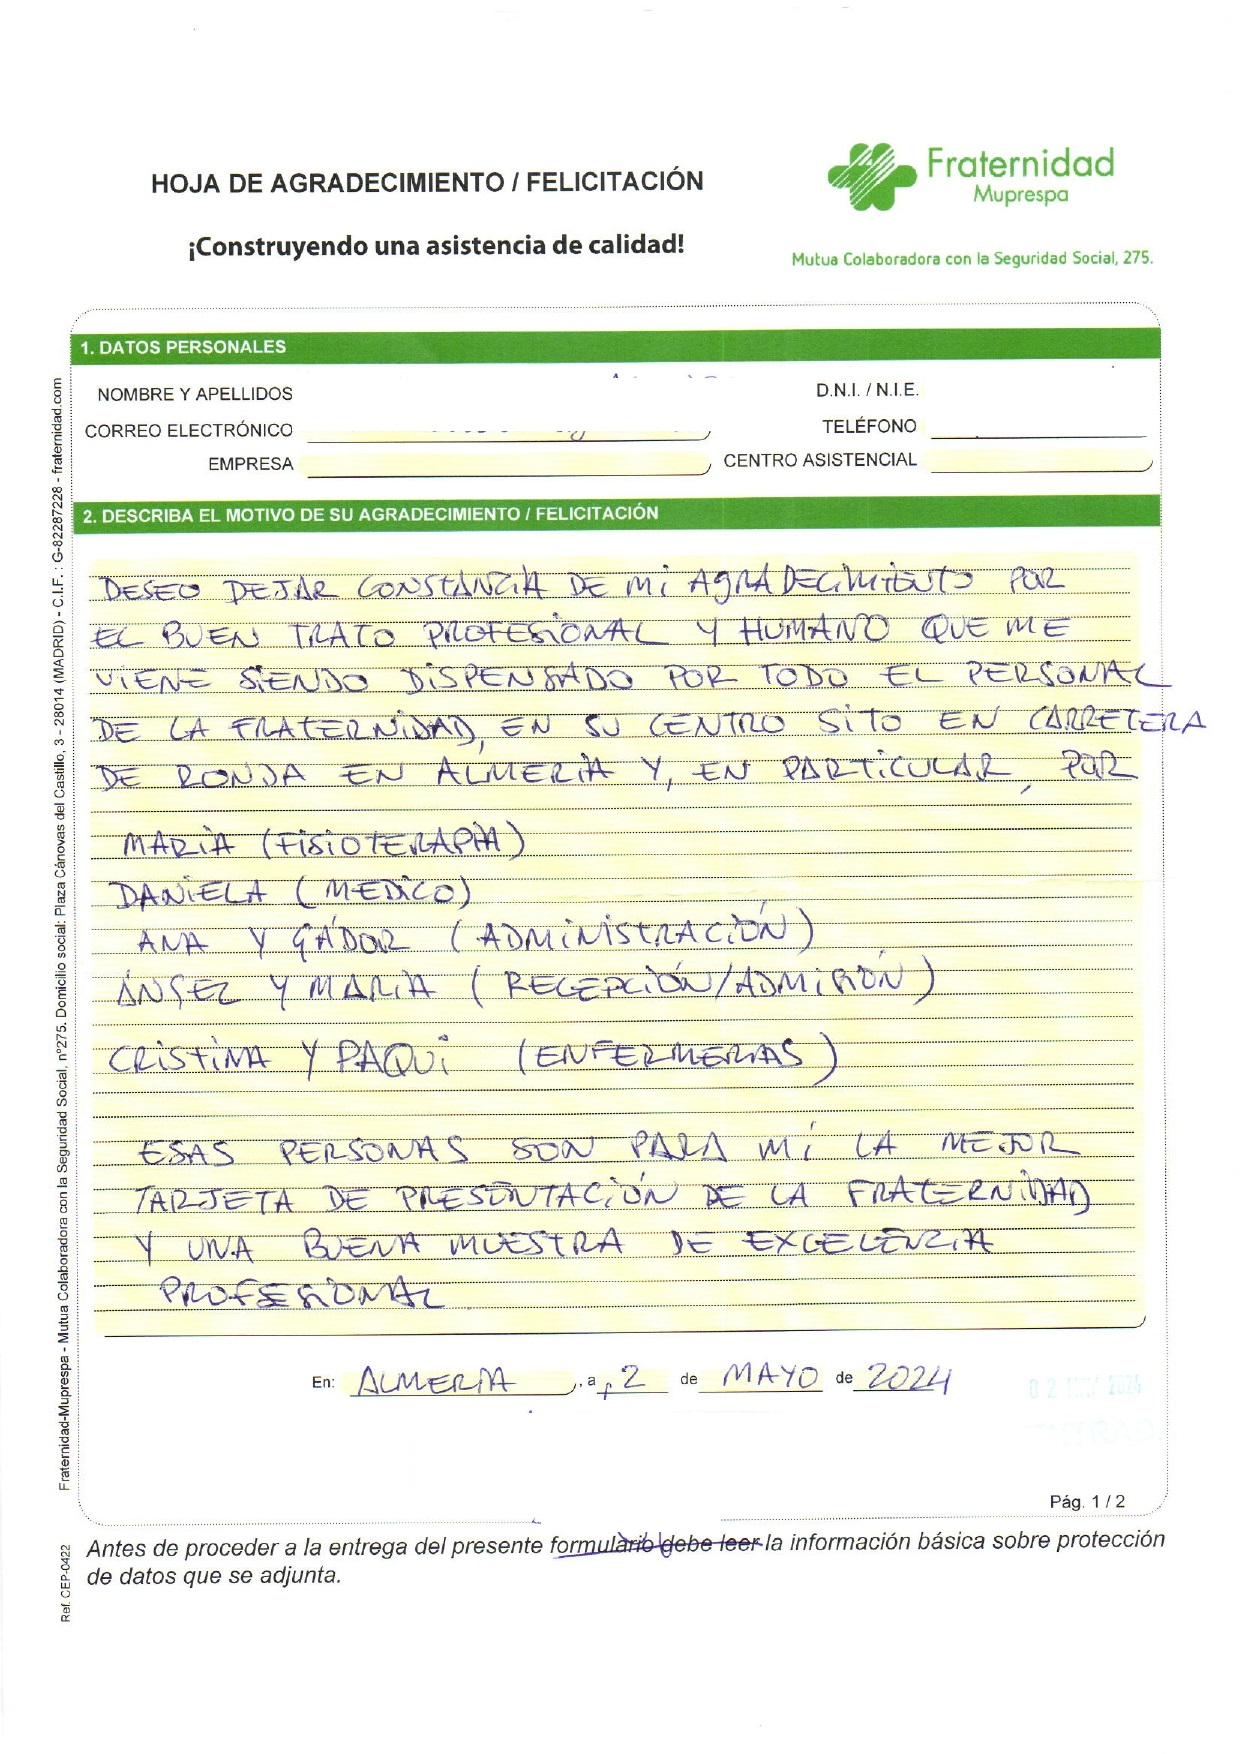 HOJA DE AGRADECIMIENTO / FELICITACIÓN
¡Construyendo una asistencia de calidad!
Fraternidad
Muprespa
Mutua Colaboradora con la Seguridad Social, 275.
1. DATOS PERSONALES
NOMBRE Y APELLIDOS
D.N.I. / N.I.E.
CORREO ELECTRÓNICO
TELÉFONO
EMPRESA
CENTRO ASISTENCIAL
2. DESCRIBA EL MOTIVO DE SU AGRADECIMIENTO / FELICITACIÓN
DESEO DEJAR CONSTANCIA DE MI AGRADECIMIENTO POR
EL BUEN TRATO PROFESIONAL Y HUMANO QUE ME
VIENE SIENDO DISPENSADO POR TODO EL PERSONAL
DE LA FRATERNIDAD, EN SU CENTRO SITO EN CARRETERA
DE RONDA EN ALMERIA Y, EN PARTICULAR, POR
MARIA (FISIOTERAPIA)
DANIELA (MEDICO)
ANA Y GÁDOR (ADMINISTRACIÓN)
ÁNGEL Y MARIA (RECEPCIÓN/ADMISIÓN)
CRISTINA Y PAQUI (ENFERMERAS)
ESAS PERSONAS SON PARA MÍ LA MEJOR
TARJETA DE PRESENTACIÓN DE LA FRATERNIDAD
Y UNA BUENA MUESTRA DE EXCELENCIA
PROFESIONAL
En: ALMERIA, a 2 de MAYO de 2024
02 MAY 2024
Pág. 1 / 2
Antes de proceder a la entrega del presente formulario debe leer la información básica sobre protección
de datos que se adjunta.
Fraternidad-Muprespa - Mutua Colaboradora con la Seguridad Social, nº275. Domicilio social: Plaza Cánovas del Castillo, 3 - 28014 (MADRID) - C.I.F. : G-82287228 - fraternidad.com
Ref. CEP-0422